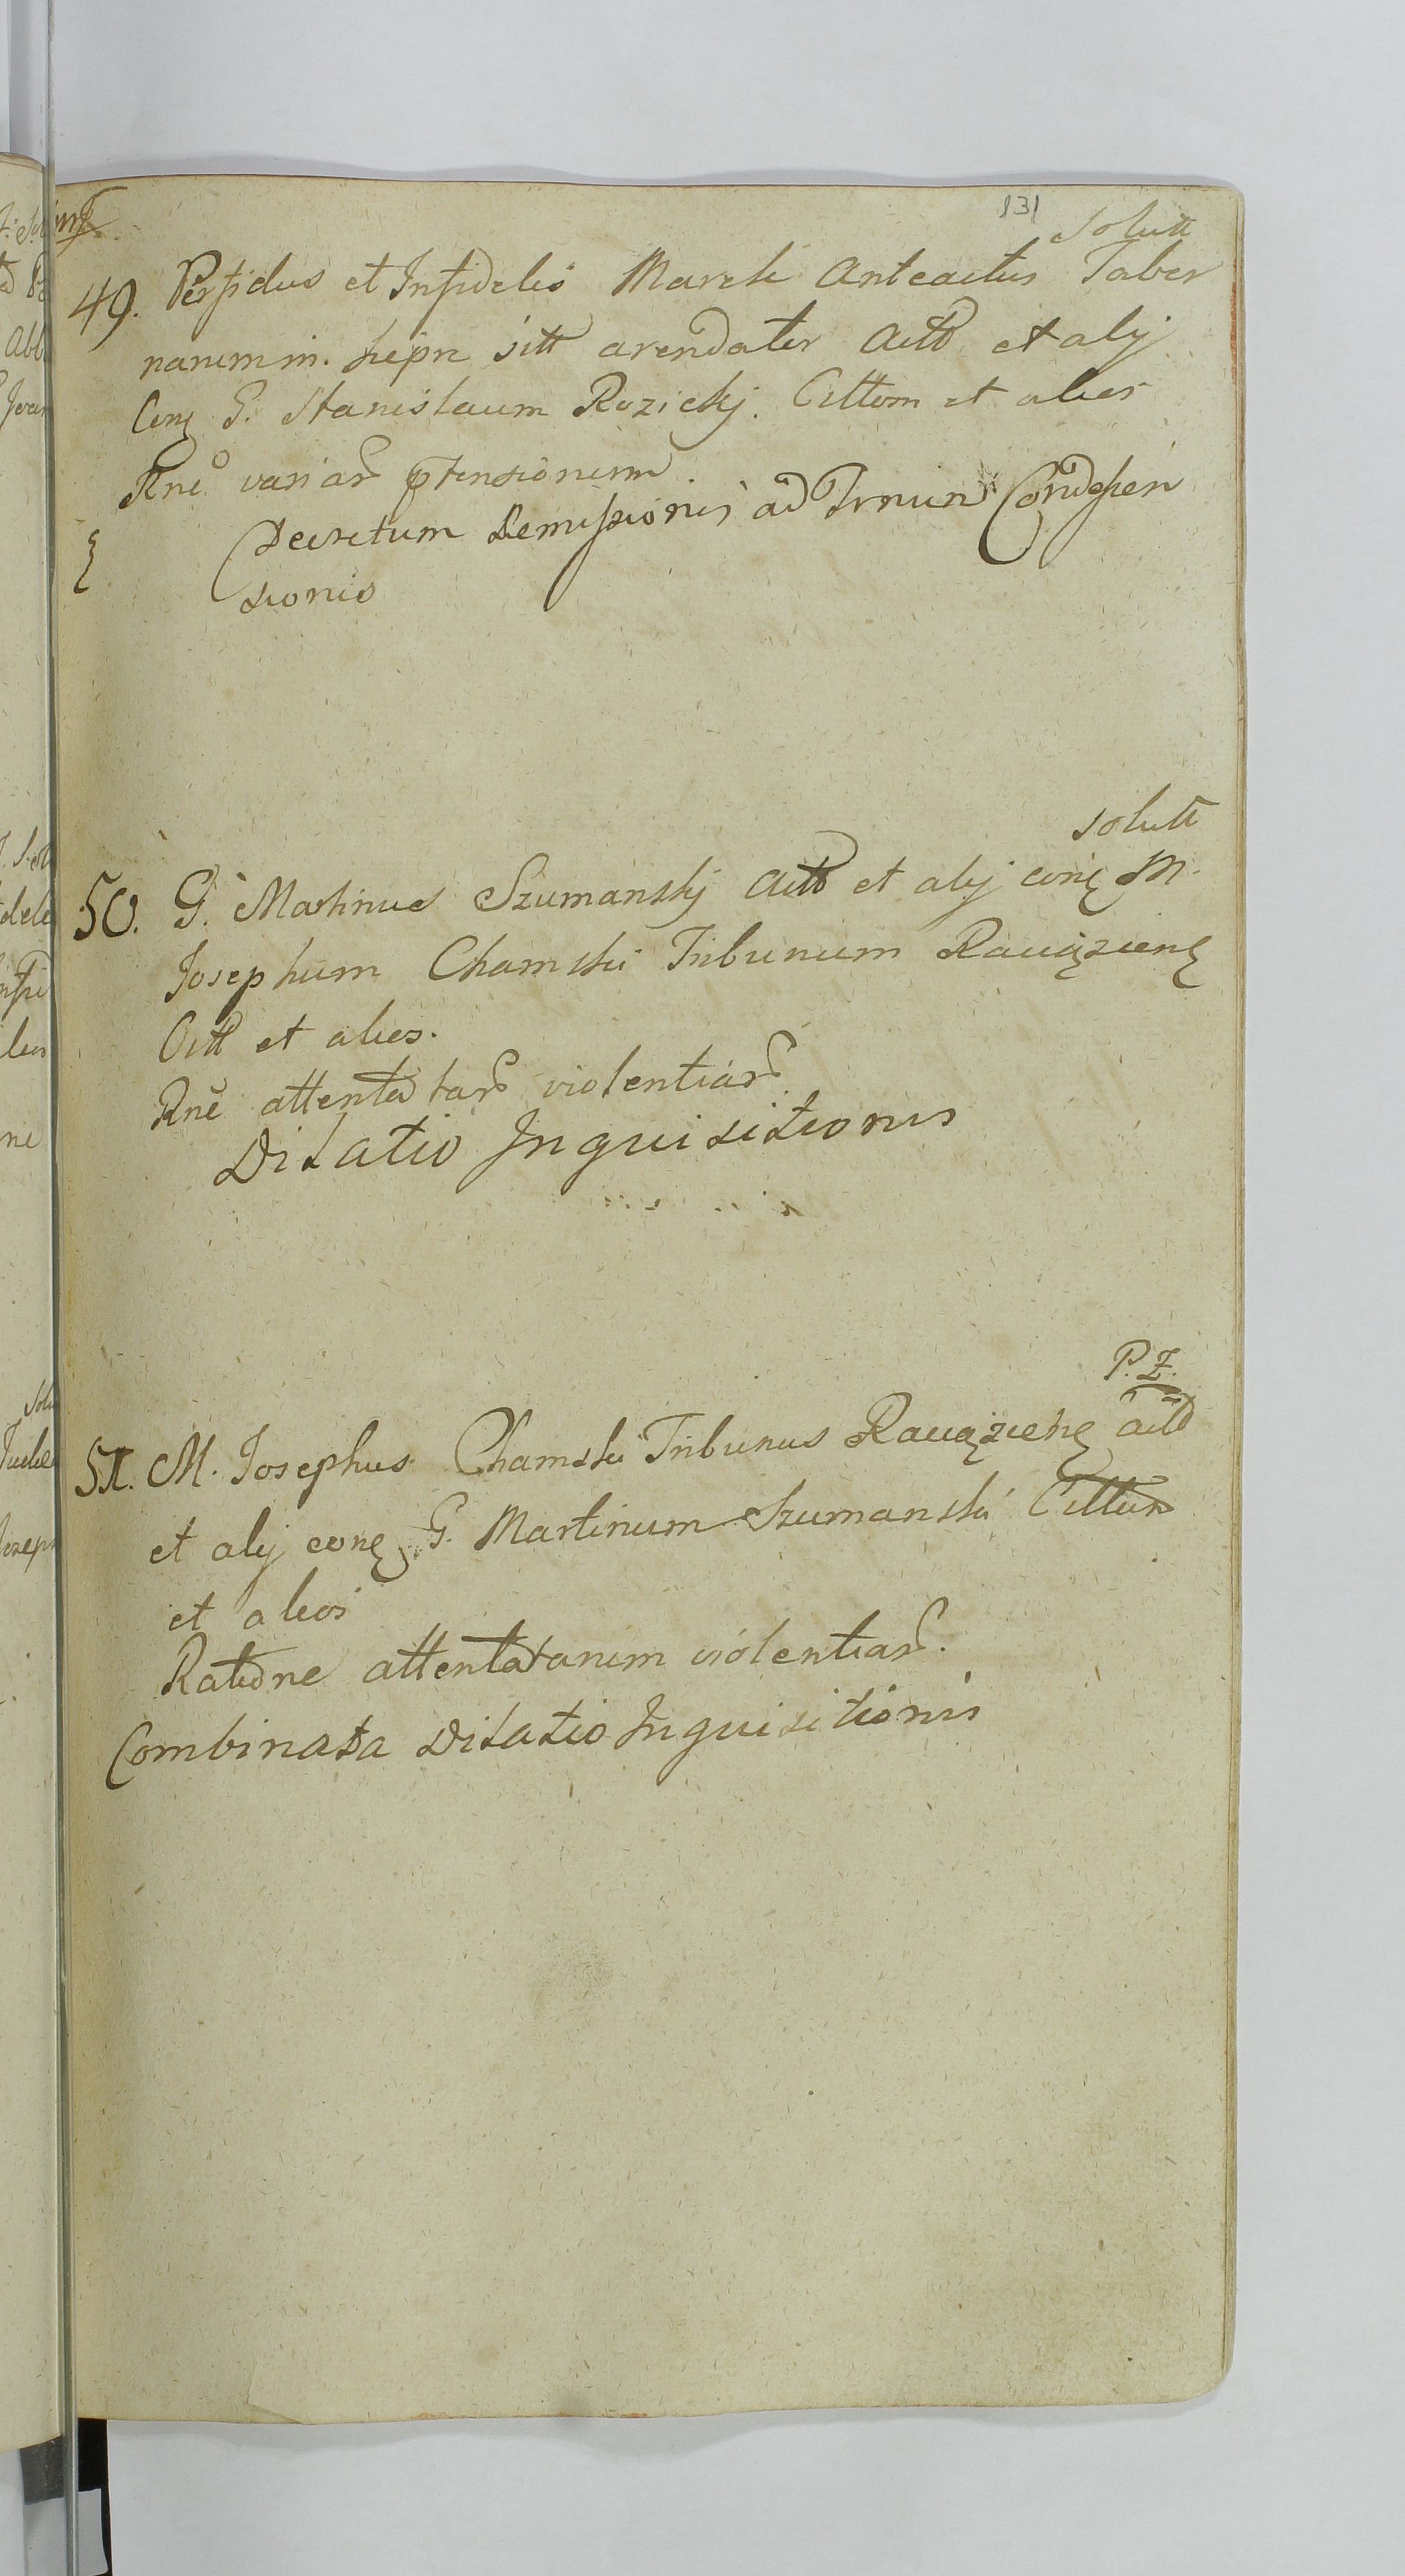 131
solutt
49. Perfidus et Infidelis Marek Anteactus Taber
narum in. Siepn sitt arendater Actt et alij
Conę G. Stanislaum Rozickj. Cittom et alios
Rne variar ptensionum
Decretum Remissionis ad Trnum Condescen
sionis
solutt
50. G. Martinus Szumanskj Actt et alij conę M.
Josephum Chamski Tribunum Raciązienę
Citt et alios.
Rne attentatar violentiar
Dilatio Inquisitionis
P. Z.
51. M. Josephus Chamski Tribunus Raciązienę actt
et alij conę G. Martinum Szumanski Cittum
et alios
Ratione attentatarum violentiar.
Combinata Dilatio Inquisitionis